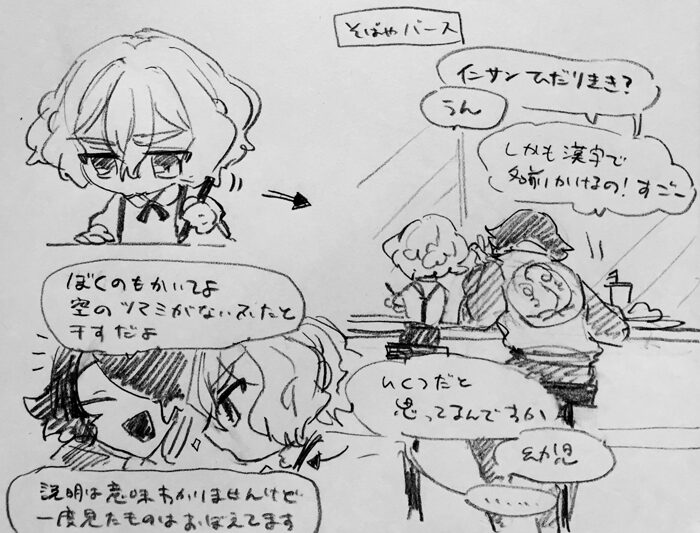 そばやバース
インサン ひだりきき?
うん
しかも漢字で
名前かけるの!すごー
ぼくのもかいてよ
空のツマミがないふたと
干すだよ
説明は意味わかりませんけど
一度見たものはおぼえてます
いくつだと
思ってるんですか
幼児
……